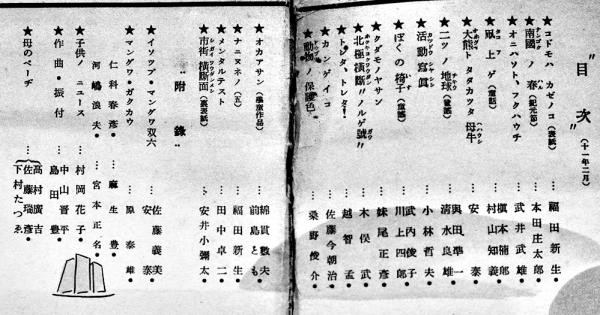 〝目次〟 (十一年二月)
★コドモハ カゼノコ (表紙) … 福田新生・
★南國ノ春 (紀元節) … 本田庄太郎・
★オニハソト、フクハウチ … 武井武雄・
★凧上ゲ (童話) … 槇本楠郎・村山知義・
★大熊トタタカツタ母牛 … 安泰・
★二ツノ地球 (童謠) … 與田凖一・清水良雄・
★活動寫眞 … 小林哲夫・
★ぼくの椅子 (童謠) … 武内俊子・川上四郎・
★クダモノヤサン … 妹尾正彦・
★北極横斷〝ノルゲ號〟 … 木俣武・
★トレタ、トレタ! … 越智孟・
★カンゲイコ … 佐藤今朝治・
★動物ノ保護色 … 桑野俊介・
★オカアサン (學童作品) … 綿貫數夫・前島とも・
★ナニヌネノ (五) … 福田新生・
★メンタルテスト … 田中卓二・
★市街横斷面 (裏表紙) … 安井小彌太・
〝附錄〟
★イソップ・マングワ双六 … 佐藤義美・安泰・
★マングワ・ガクカウ … 原泰雄・
仁科春彦・麻生豊・
河嶋浪夫・宮本正名・
★子供ノニュース … 村岡花子・
★作曲・振付 … 中山晋平・島田豊・
★母のページ … 高村廣吉・佐藤瑞彦・下村たつゑ・